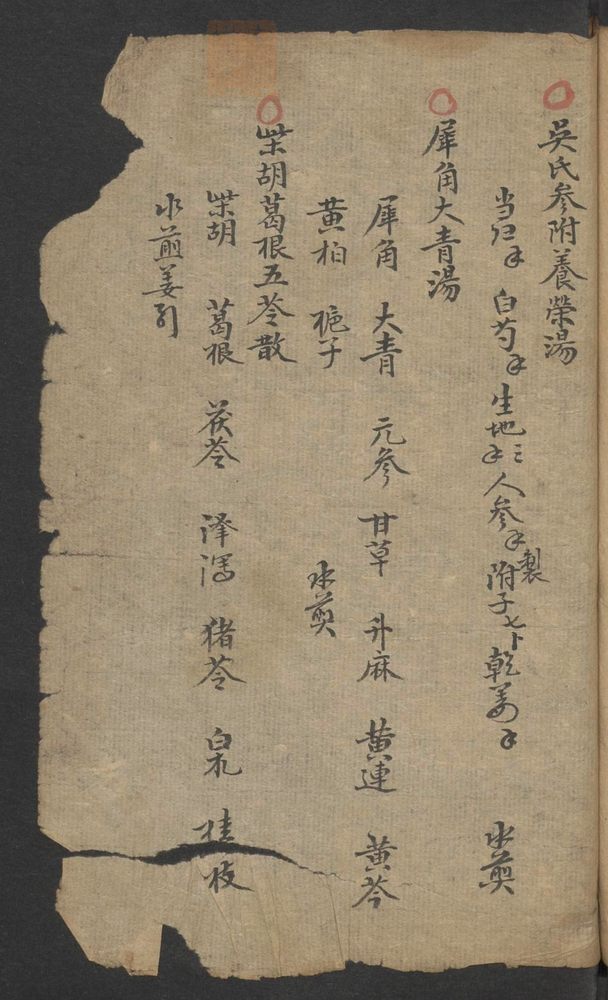 吳氏參附養榮湯
当归 白芍 生地三 人参 製附子 乾姜 水煎
犀角大青湯
犀角 大青 元參 甘草 升麻 黄連 黃芩
黄柏 梔子 水煎
柴胡葛根五苓散
柴胡 葛根 茯苓 泽瀉 猪苓 白朮 桂枝
水煎姜引